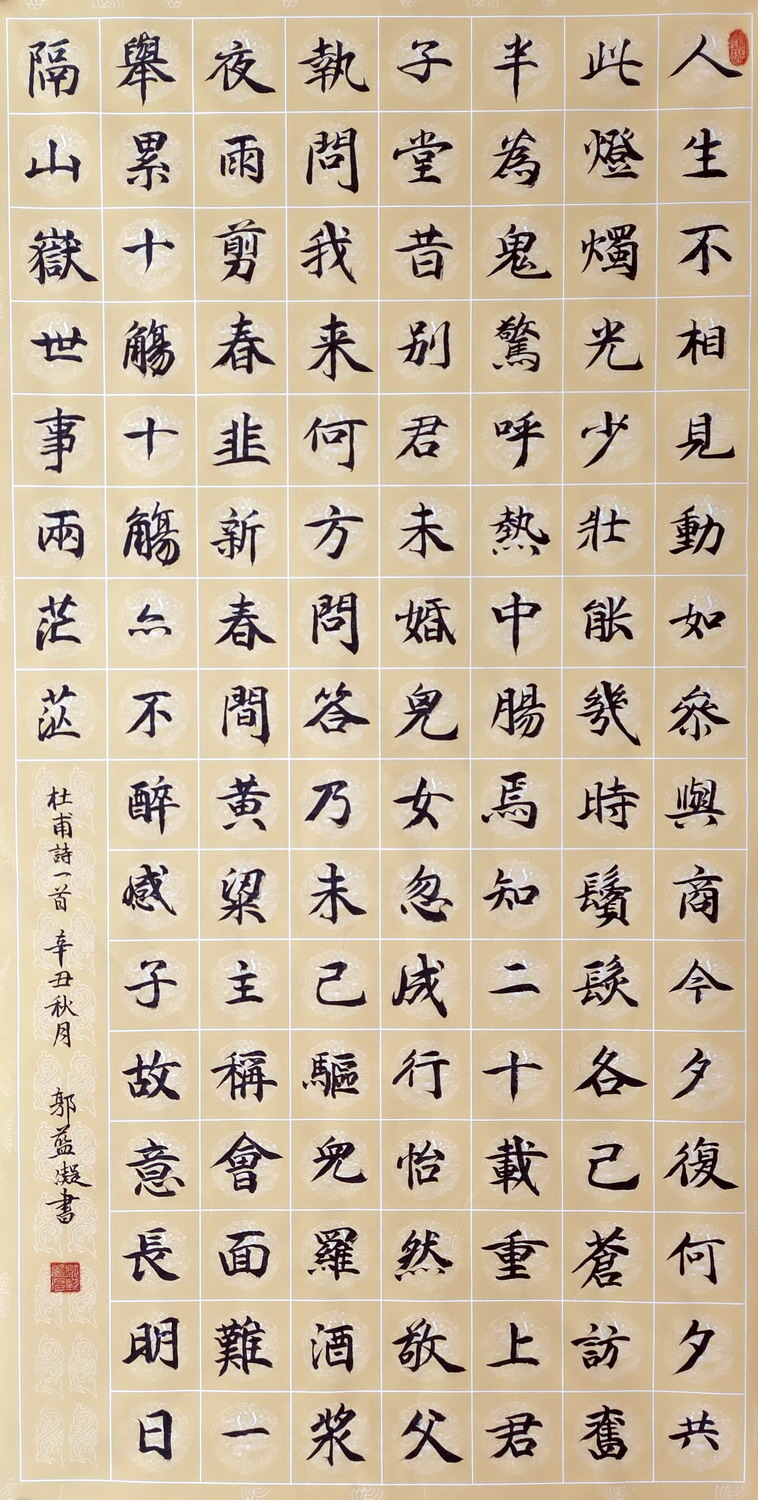 人生不相見動如參與商今夕復何夕共
此燈燭光少壯能幾時鬢髮各已蒼訪舊
半為鬼驚呼熱中腸焉知二十載重上君
子堂昔别君未婚兒女忽成行怡然敬父
執問我来何方問答乃未已驅兒羅酒漿
夜雨剪春韭新春間黄粱主稱會面難一
舉累十觴十觴亦不醉感子故意長明日
隔山嶽世事兩茫茫
杜甫詩一首 辛丑秋月 郭藍凝書